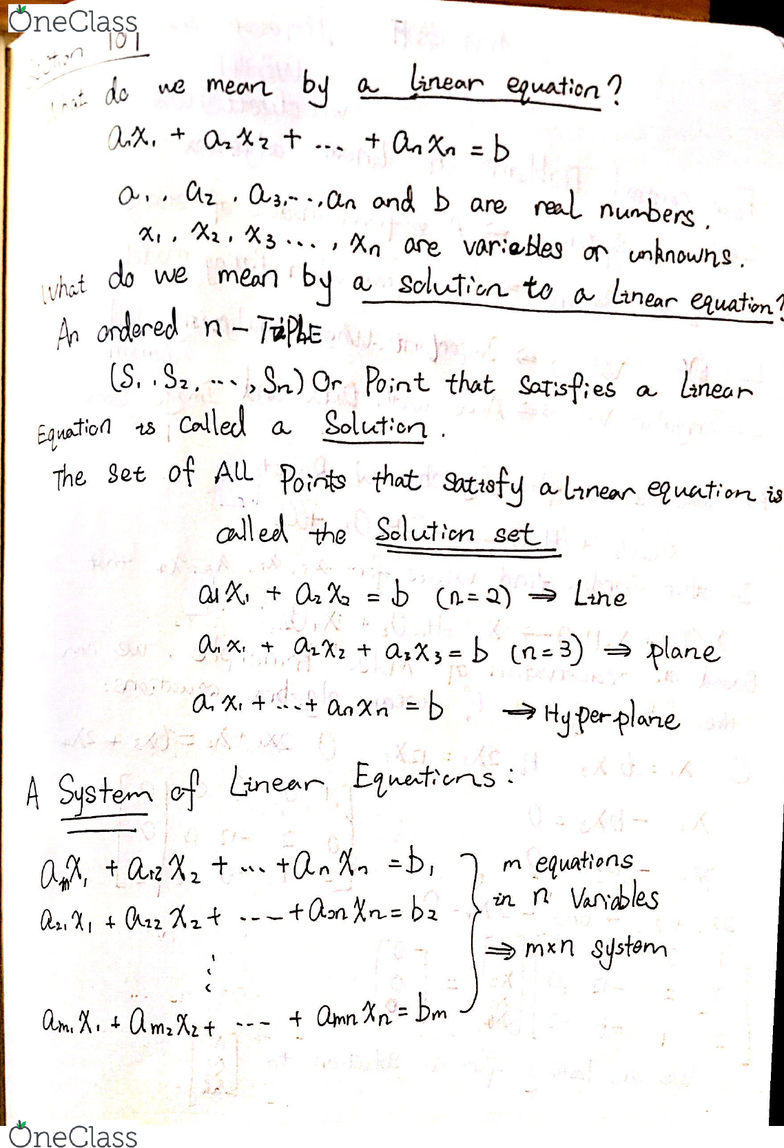 OneClass
101
do we mean by a linear equation?
a₁x₁ + a₂x₂ + ... + aₙxₙ = b
a₁, a₂, a₃,...,aₙ and b are real numbers.
x₁, x₂, x₃..., xₙ are variables or unknowns.
What do we mean by a solution to a Linear equation?
An ordered n-TUPLE
(S₁, S₂, ..., Sₙ) Or Point that satisfies a Linear
Equation is called a Solution.
The set of ALL Points that satisfy a Linear equation is
called the Solution set
a₁x₁ + a₂x₂ = b (n=2) ⇒ Line
a₁x₁ + a₂x₂ + a₃x₃ = b (n=3) ⇒ plane
a₁x₁ + ... + aₙxₙ = b ⇒ Hyperplane
A System of Linear Equations:
a₁₁x₁ + a₁₂x₂ + ... + aₙxₙ = b₁ m equations
a₂₁x₁ + a₂₂x₂ + ... + a₂ₙxₙ = b₂ in n Variables
⇒ m×n system
aₘ₁x₁ + aₘ₂x₂ + ... + aₘₙxₙ = bₘ
OneClass